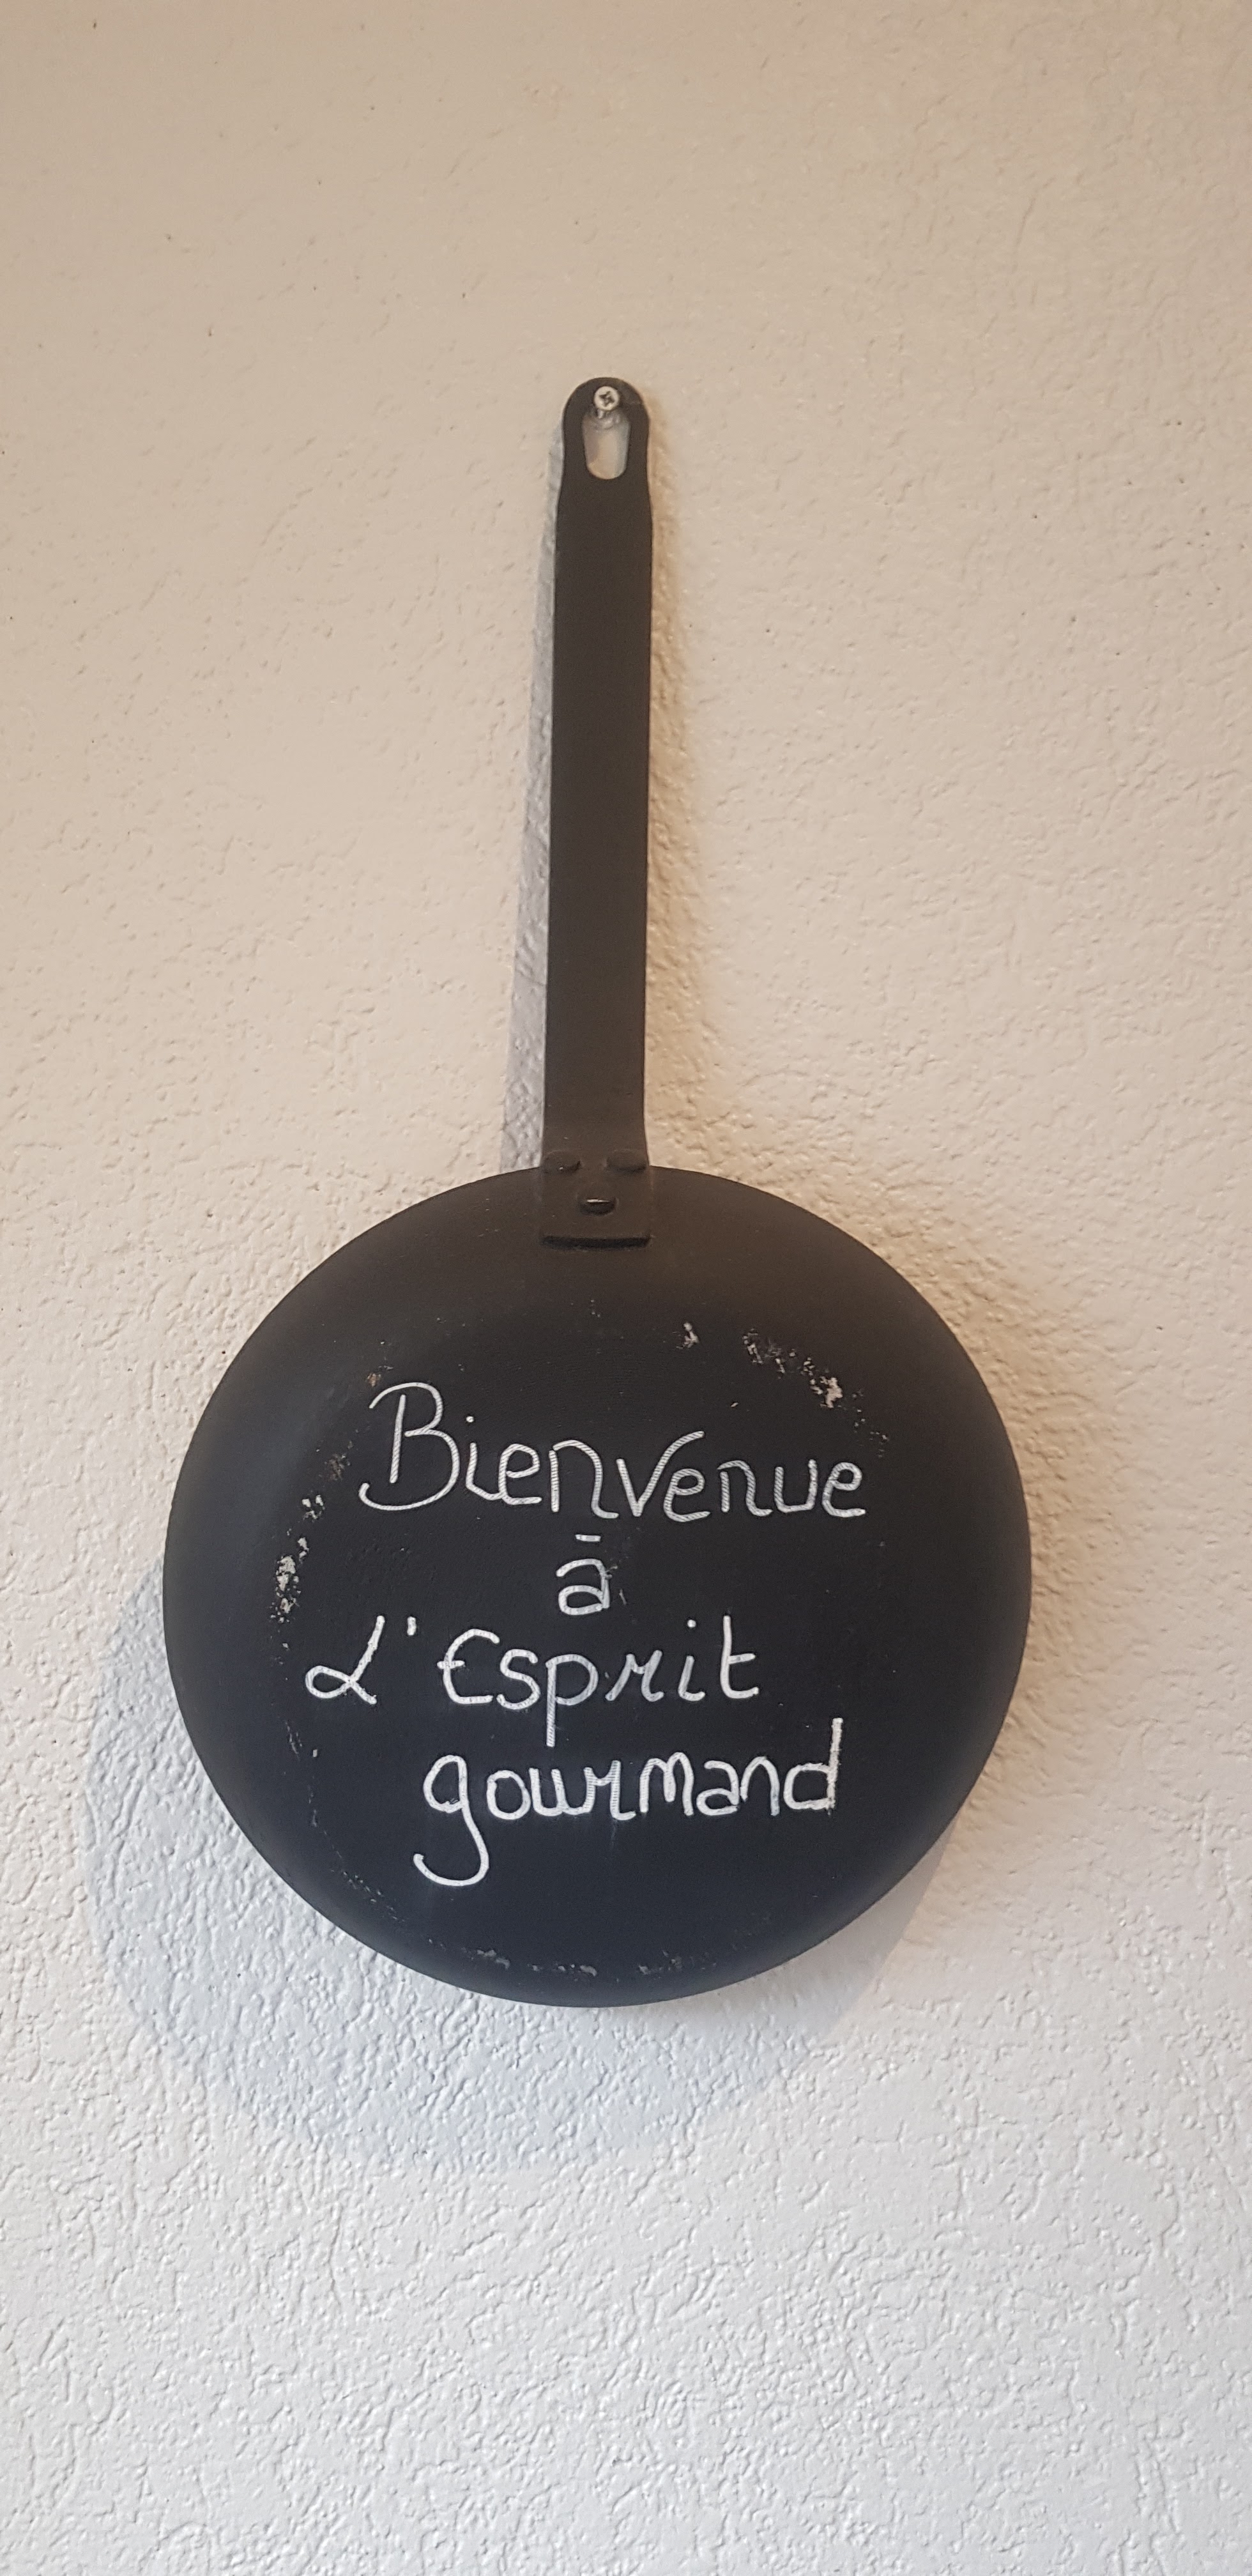 Bienvenue
à
L'Esprit
gourmand